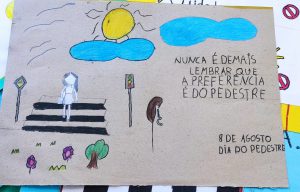 NUNCA É DEMAIS
LEMBRAR QUE
A PREFERÊNCIA
É DO PEDESTRE
8 DE AGOSTO
DIA DO PEDESTRE